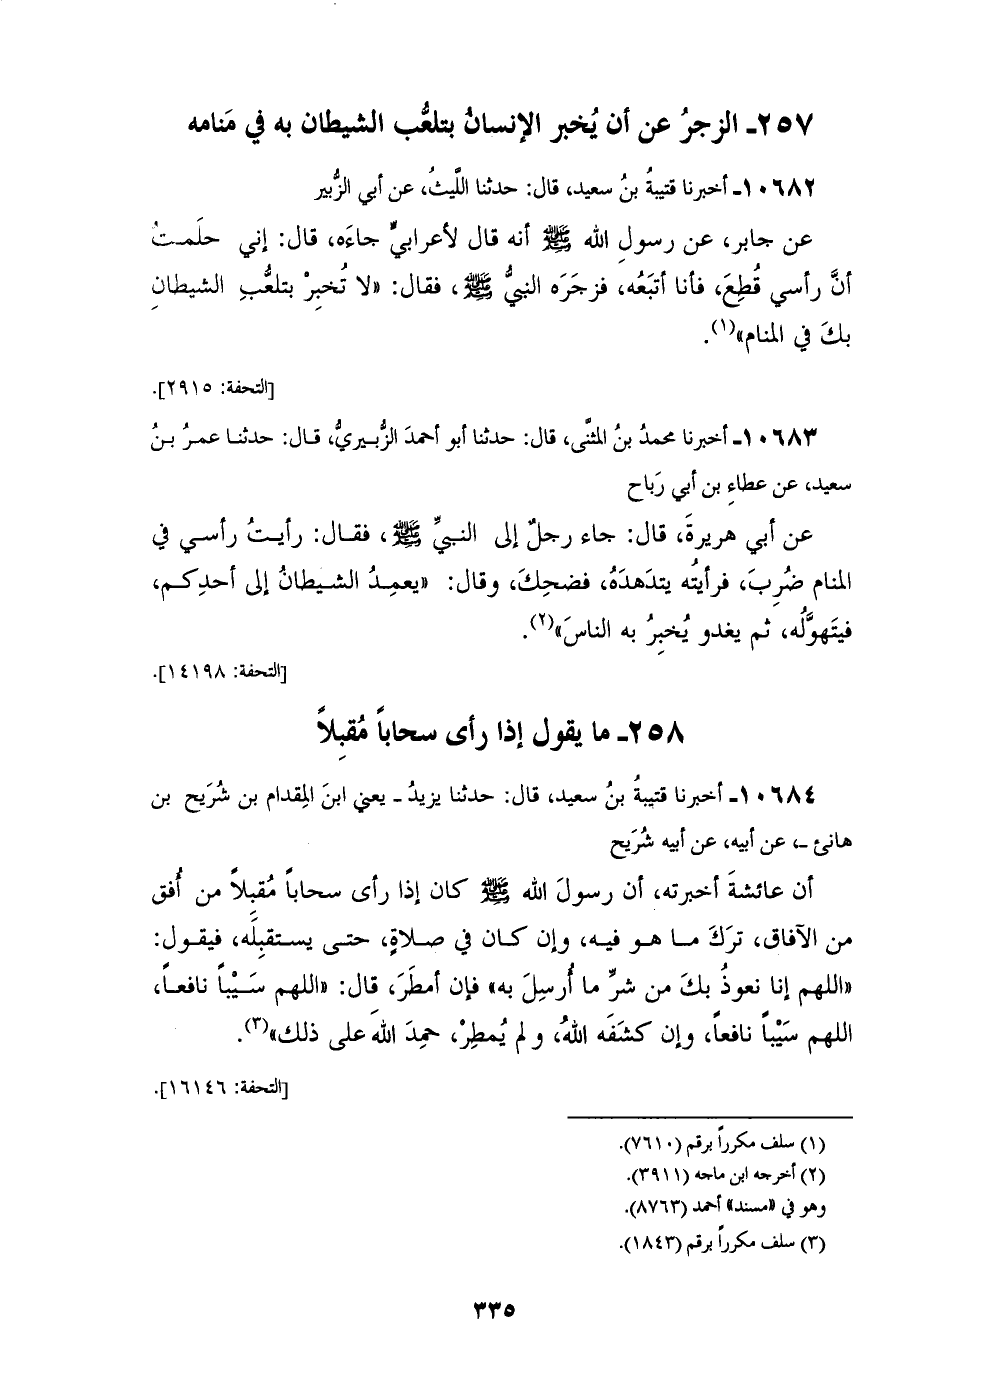 ٢٥٧ـ الزجرُ عن أن يُخبر الإنسانُ بتلعُّب الشيطان به في مَنامه
١٠٦٨٢ـ أخبرنا قتيبةُ بنُ سعيد، قال: حدثنا اللَّيثُ، عن أبي الزُّبير
عن جابر، عن رسولِ الله ﷺ أنه قال لأعرابيٍّ جاءَه، قال: إني حلَمتُ
أنَّ رأسي قُطِعَ، فأنا أتبَعُه، فزجَرَه النبيُّ ﷺ، فقال: «لا تُخبِرْ بتلعُّبِ الشيطانِ
بكَ في المنام»(١).
[التحفة: ٢٩١٥].
١٠٦٨٣ـ أخبرنا محمدُ بنُ المثنَّى، قال: حدثنا أبو أحمدَ الزُّبيريُّ، قال: حدثنا عمرُ بنُ
سعيد، عن عطاءِ بن أبي رَباح
عن أبي هريرةَ، قال: جاء رجلٌ إلى النبيِّ ﷺ، فقال: رأيتُ رأسي في
المنام ضُرِبَ، فرأيتُه يتدَهدَهُ، فضحِكَ، وقال: «يعمِدُ الشيطانُ إلى أحدِكم،
فيتَهوَّلُه، ثم يغدو يُخبِرُ به الناسَ»(٢).
[التحفة: ١٤١٩٨].
٢٥٨ـ ما يقول إذا رأى سحاباً مُقبِلاً
١٠٦٨٤ـ أخبرنا قتيبةُ بنُ سعيد، قال: حدثنا يزيدُ ـ يعني ابنَ المِقدام بن شُرَيح بن
هانئ ـ، عن أبيه، عن أبيه شُرَيح
أن عائشةَ أخبرته، أن رسولَ الله ﷺ كان إذا رأى سحاباً مُقبِلاً من أُفق
من الآفاق، ترَكَ ما هو فيه، وإن كان في صلاةٍ، حتى يستقبِلَه، فيقول:
«اللهم إنا نعوذُ بكَ من شرِّ ما أُرسِلَ به» فإن أمطَرَ، قال: «اللهم سَيْباً نافعاً،
اللهم سَيْباً نافعاً، وإن كشَفَه اللهُ، و لم يُمطِرْ، حمِدَ اللهَ على ذلك»(٣).
[التحفة: ١٦١٤٦].
(١) سلف مكرراً برقم (٧٦١٠).
(٢) أخرجه ابن ماجه (٣٩١١).
وهو في «مسند» أحمد (٨٧٦٣).
(٣) سلف مكرراً برقم (١٨٤٣).
٣٣٥